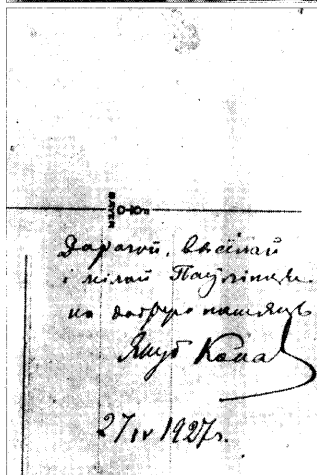 BAYER
Дарагой, васілай
і мілай Паўлінцы
на добрую памяць
Якуб Колас
27 IV 1927 г.